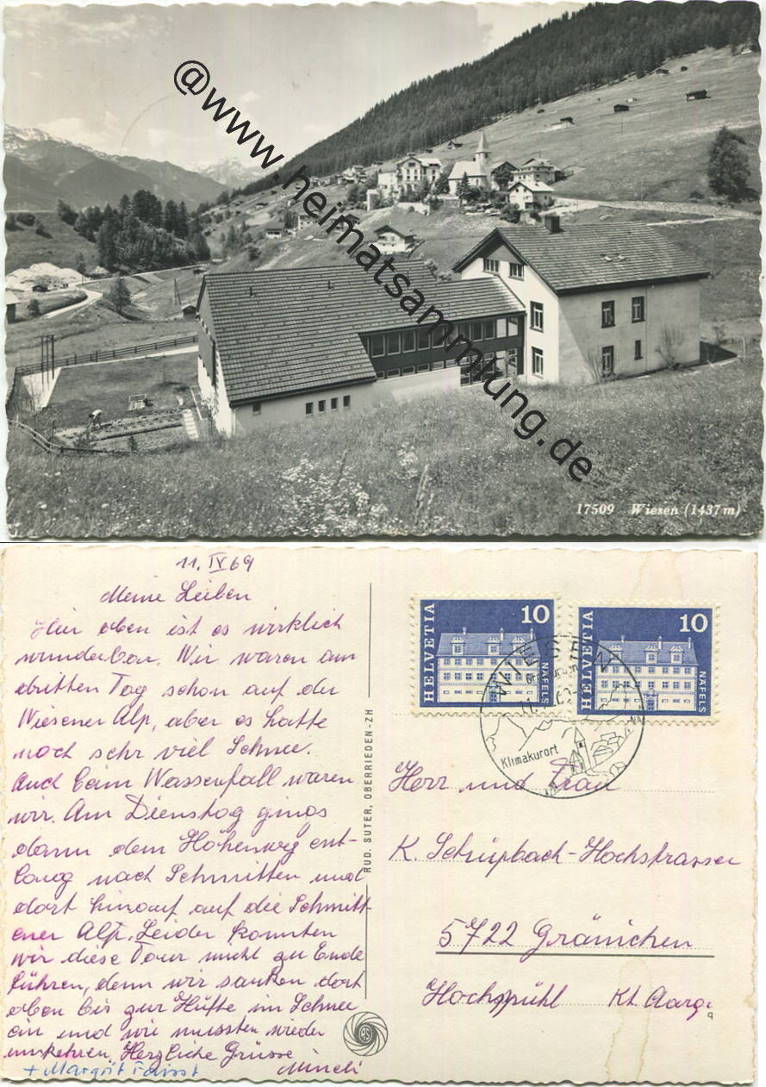 @www.heimatsammlung.de
17509 Wiesen (1437m)
11. IV 69
Meine Lieben
Hier oben ist es wirklich
wunderbar. Wir waren am
dritten Tag schon auf der
Wiesener Alp, aber es hatte
noch sehr viel Schnee.
Auch beim Wasserfall waren
wir. Am Dienstag gings
dann dem Höhenweg ent-
lang nach Schmitten und
dort hinauf auf die Schmitt-
ener Alp. Leider konnten
wir diese Tour nicht zu Ende
führen, denn wir sanken dort
oben bis zur Hüfte im Schnee
ein und wir mussten wieder
umkehren. Herzliche Grüsse
Mineli
+ Margrit Faisst
RUD. SUTER, OBERRIEDEN-ZH
HELVETIA 10 NÄFELS
HELVETIA 10 NÄFELS
WIESEN
Klimakurort
Herr und Frau
K. Schüpbach-Hochstrasser
5722 Gränichen
Hochspühl Kt. Aarg.